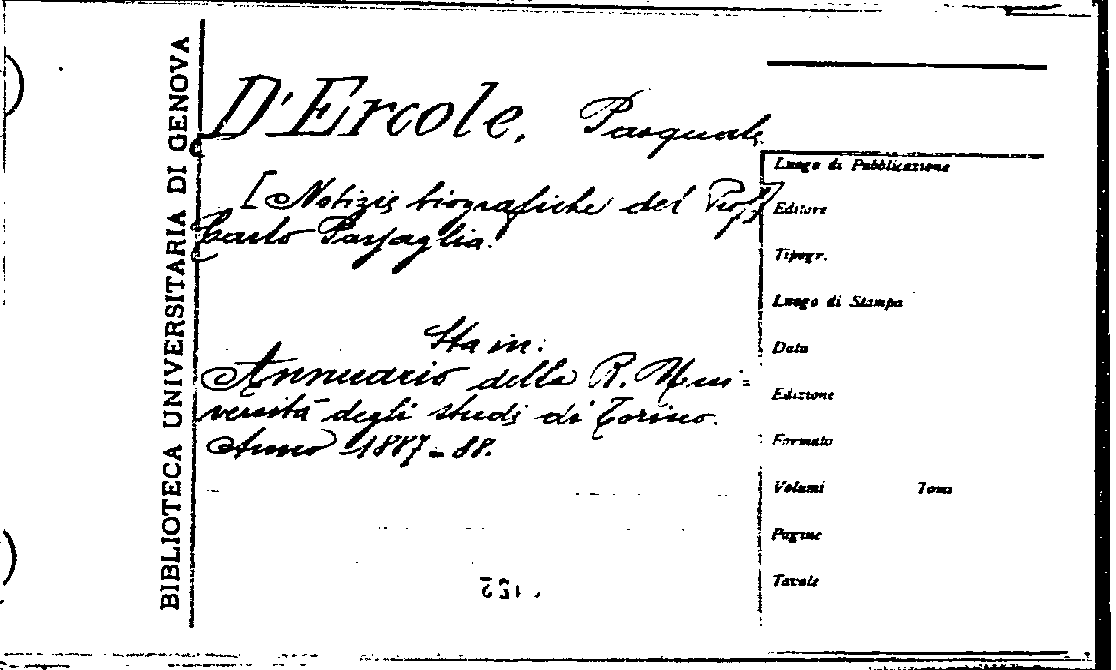 BIBLIOTECA UNIVERSITARIA DI GENOVA
D'Ercole, Pasquale
[Notizie biografiche del Prof.
Carlo Passaglia.
Sta in:
Annuario della R. Uni=
versità degli studi di Torino.
Anno 1887-88.
Luogo di Pubblicazione
Editore
Tipogr.
Luogo di Stampa
Data
Edizione
Formato
Volumi Tomi
Pagine
Tavole